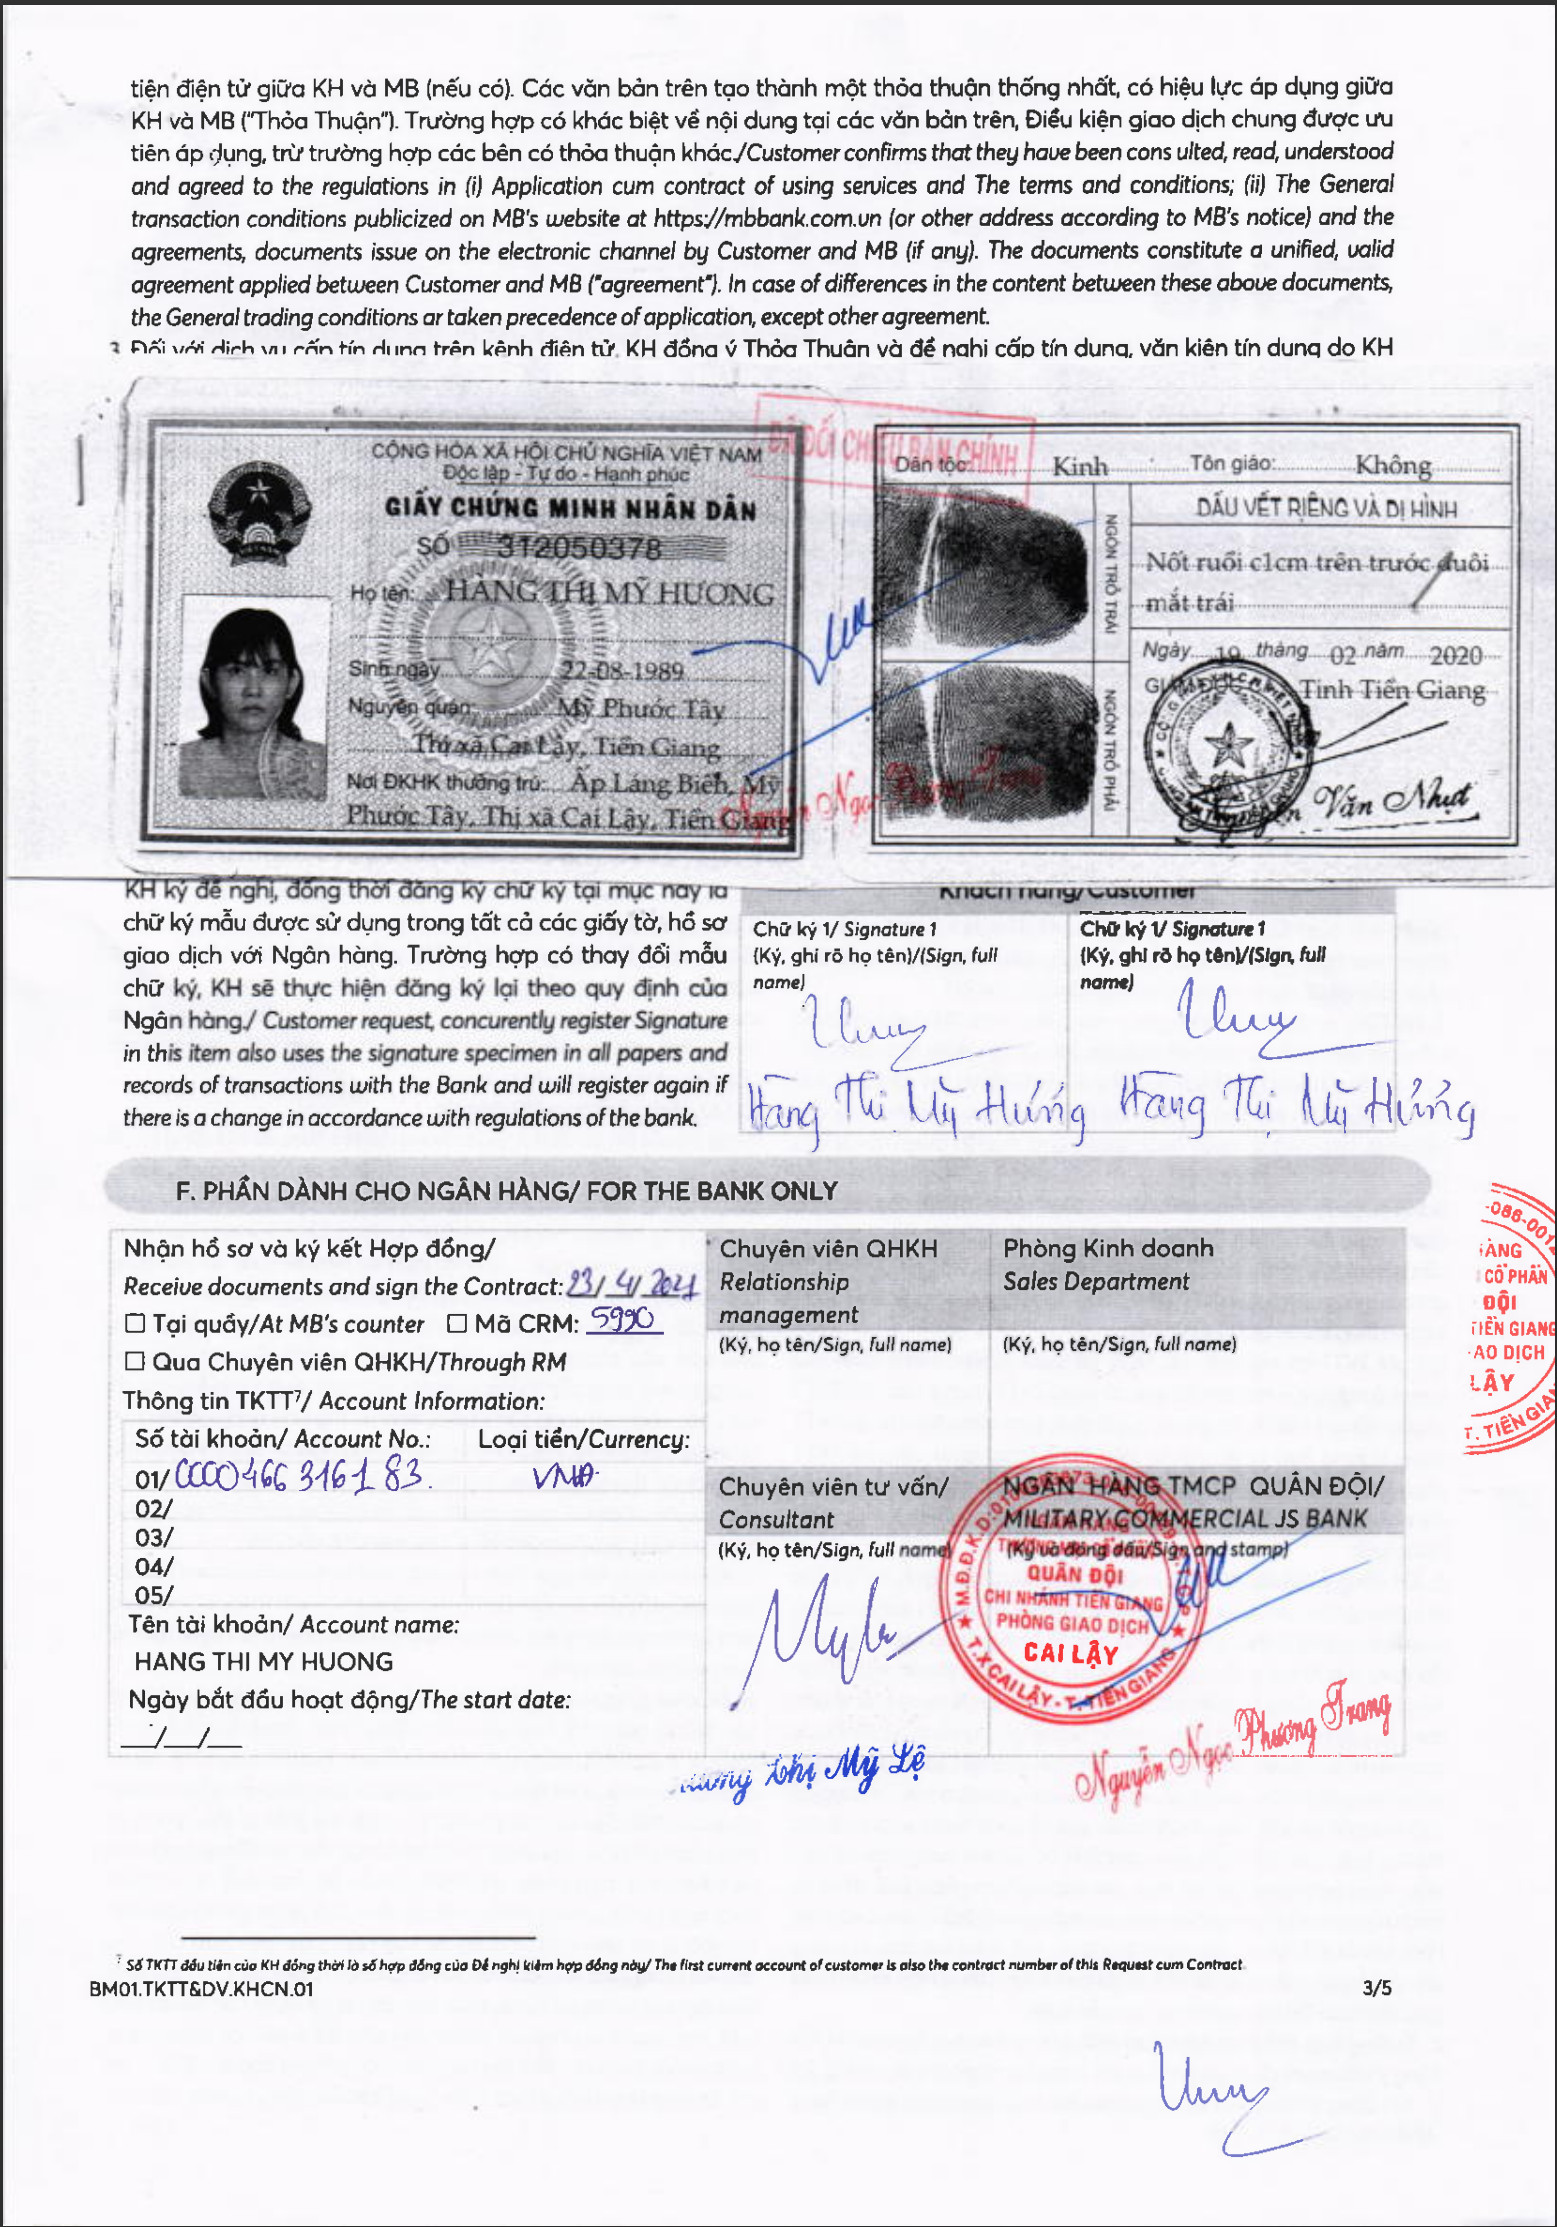 tiện điện tử giữa KH và MB (nếu có). Các văn bản trên tạo thành một thỏa thuận thống nhất, có hiệu lực áp dụng giữa
KH và MB ("Thỏa Thuận"). Trường hợp có khác biệt về nội dung tại các văn bản trên, Điều kiện giao dịch chung được ưu
tiên áp dụng, trừ trường hợp các bên có thỏa thuận khác./Customer confirms that they have been cons ulted, read, understood
and agreed to the regulations in (i) Application cum contract of using services and The terms and conditions; (ii) The General
transaction conditions publicized on MB's website at https://mbbank.com.vn (or other address according to MB's notice) and the
agreements, documents issue on the electronic channel by Customer and MB (if any). The documents constitute a unified, valid
agreement applied between Customer and MB ("agreement"). In case of differences in the content between these above documents,
the General trading conditions ar taken precedence of application, except other agreement.
3 Đối với dịch vụ cấp tín dụng trên kênh điện tử, KH đồng ý Thỏa Thuận và đề nghị cấp tín dụng, văn kiện tín dụng do KH
ĐÃ ĐỐI CHIẾU BẢN CHÍNH
CỘNG HÒA XÃ HỘI CHỦ NGHĨA VIỆT NAM
Độc lập - Tự do - Hạnh phúc
GIẤY CHỨNG MINH NHÂN DÂN
SỐ 312050378
Họ tên: HÀNG THỊ MỸ HƯƠNG
Sinh ngày 22-08-1989
Nguyên quán: Mỹ Phước Tây
Thị xã Cai Lậy, Tiền Giang
Nơi ĐKHK thường trú: Ấp Láng Biển, Mỹ
Phước Tây, Thị xã Cai Lậy, Tiền Giang
Dân tộc: Kinh Tôn giáo: Không
DẤU VẾT RIÊNG VÀ DỊ HÌNH
Nốt ruồi c1cm trên trước đuôi
mắt trái
NGÓN TRỎ TRÁI
NGÓN TRỎ PHẢI
Ngày 19 tháng 02 năm 2020
GIÁM ĐỐC Tỉnh Tiền Giang
Nguyễn Văn Nhựt
Nguyễn Ngọc Phương Trang
KH ký đề nghị, đồng thời đăng ký chữ ký tại mục này là
chữ ký mẫu được sử dụng trong tất cả các giấy tờ, hồ sơ
giao dịch với Ngân hàng. Trường hợp có thay đổi mẫu
chữ ký, KH sẽ thực hiện đăng ký lại theo quy định của
Ngân hàng./ Customer request, concurently register Signature
in this item also uses the signature specimen in all papers and
records of transactions with the Bank and will register again if
there is a change in accordance with regulations of the bank.
Khách hàng/Customer
Chữ ký 1/ Signature 1
(Ký, ghi rõ họ tên)/(Sign, full
name)
Hàng Thị Mỹ Hương
Chữ ký 1/ Signature 1
(Ký, ghi rõ họ tên)/(Sign, full
name)
Hàng Thị Mỹ Hương
F. PHẦN DÀNH CHO NGÂN HÀNG/ FOR THE BANK ONLY
Nhận hồ sơ và ký kết Hợp đồng/
Receive documents and sign the Contract: 23/ 4/ 2021
☐ Tại quầy/At MB's counter ☐ Mã CRM: 5990
☐ Qua Chuyên viên QHKH/Through RM
Thông tin TKTT⁷/ Account Information:
Số tài khoản/ Account No.: Loại tiền/Currency:
01/ 0000466316183. VNĐ
02/
03/
04/
05/
Tên tài khoản/ Account name:
HANG THI MY HUONG
Ngày bắt đầu hoạt động/The start date:
__/__/__
Chuyên viên QHKH
Relationship
management
(Ký, họ tên/Sign, full name)
Phòng Kinh doanh
Sales Department
(Ký, họ tên/Sign, full name)
Chuyên viên tư vấn/
Consultant
(Ký, họ tên/Sign, full name)
Thị Mỹ Lệ
NGÂN HÀNG TMCP QUÂN ĐỘI/
MILITARY COMMERCIAL JS BANK
(Ký và đóng dấu/Sign and stamp)
QUÂN ĐỘI
CHI NHÁNH TIỀN GIANG
PHÒNG GIAO DỊCH
CAI LẬY
T.X CAI LẬY - T. TIỀN GIANG
Nguyễn Ngọc Phương Trang
-086-001
HÀNG
CỔ PHẦN
ĐỘI
TIỀN GIANG
AO DỊCH
LẬY
T. TIỀN GIANG
⁷ Số TKTT đầu tiên của KH đồng thời là số hợp đồng của Đề nghị kiêm hợp đồng này/ The first current account of customer is also the contract number of this Request cum Contract
BM01.TKTT&DV.KHCN.01
3/5